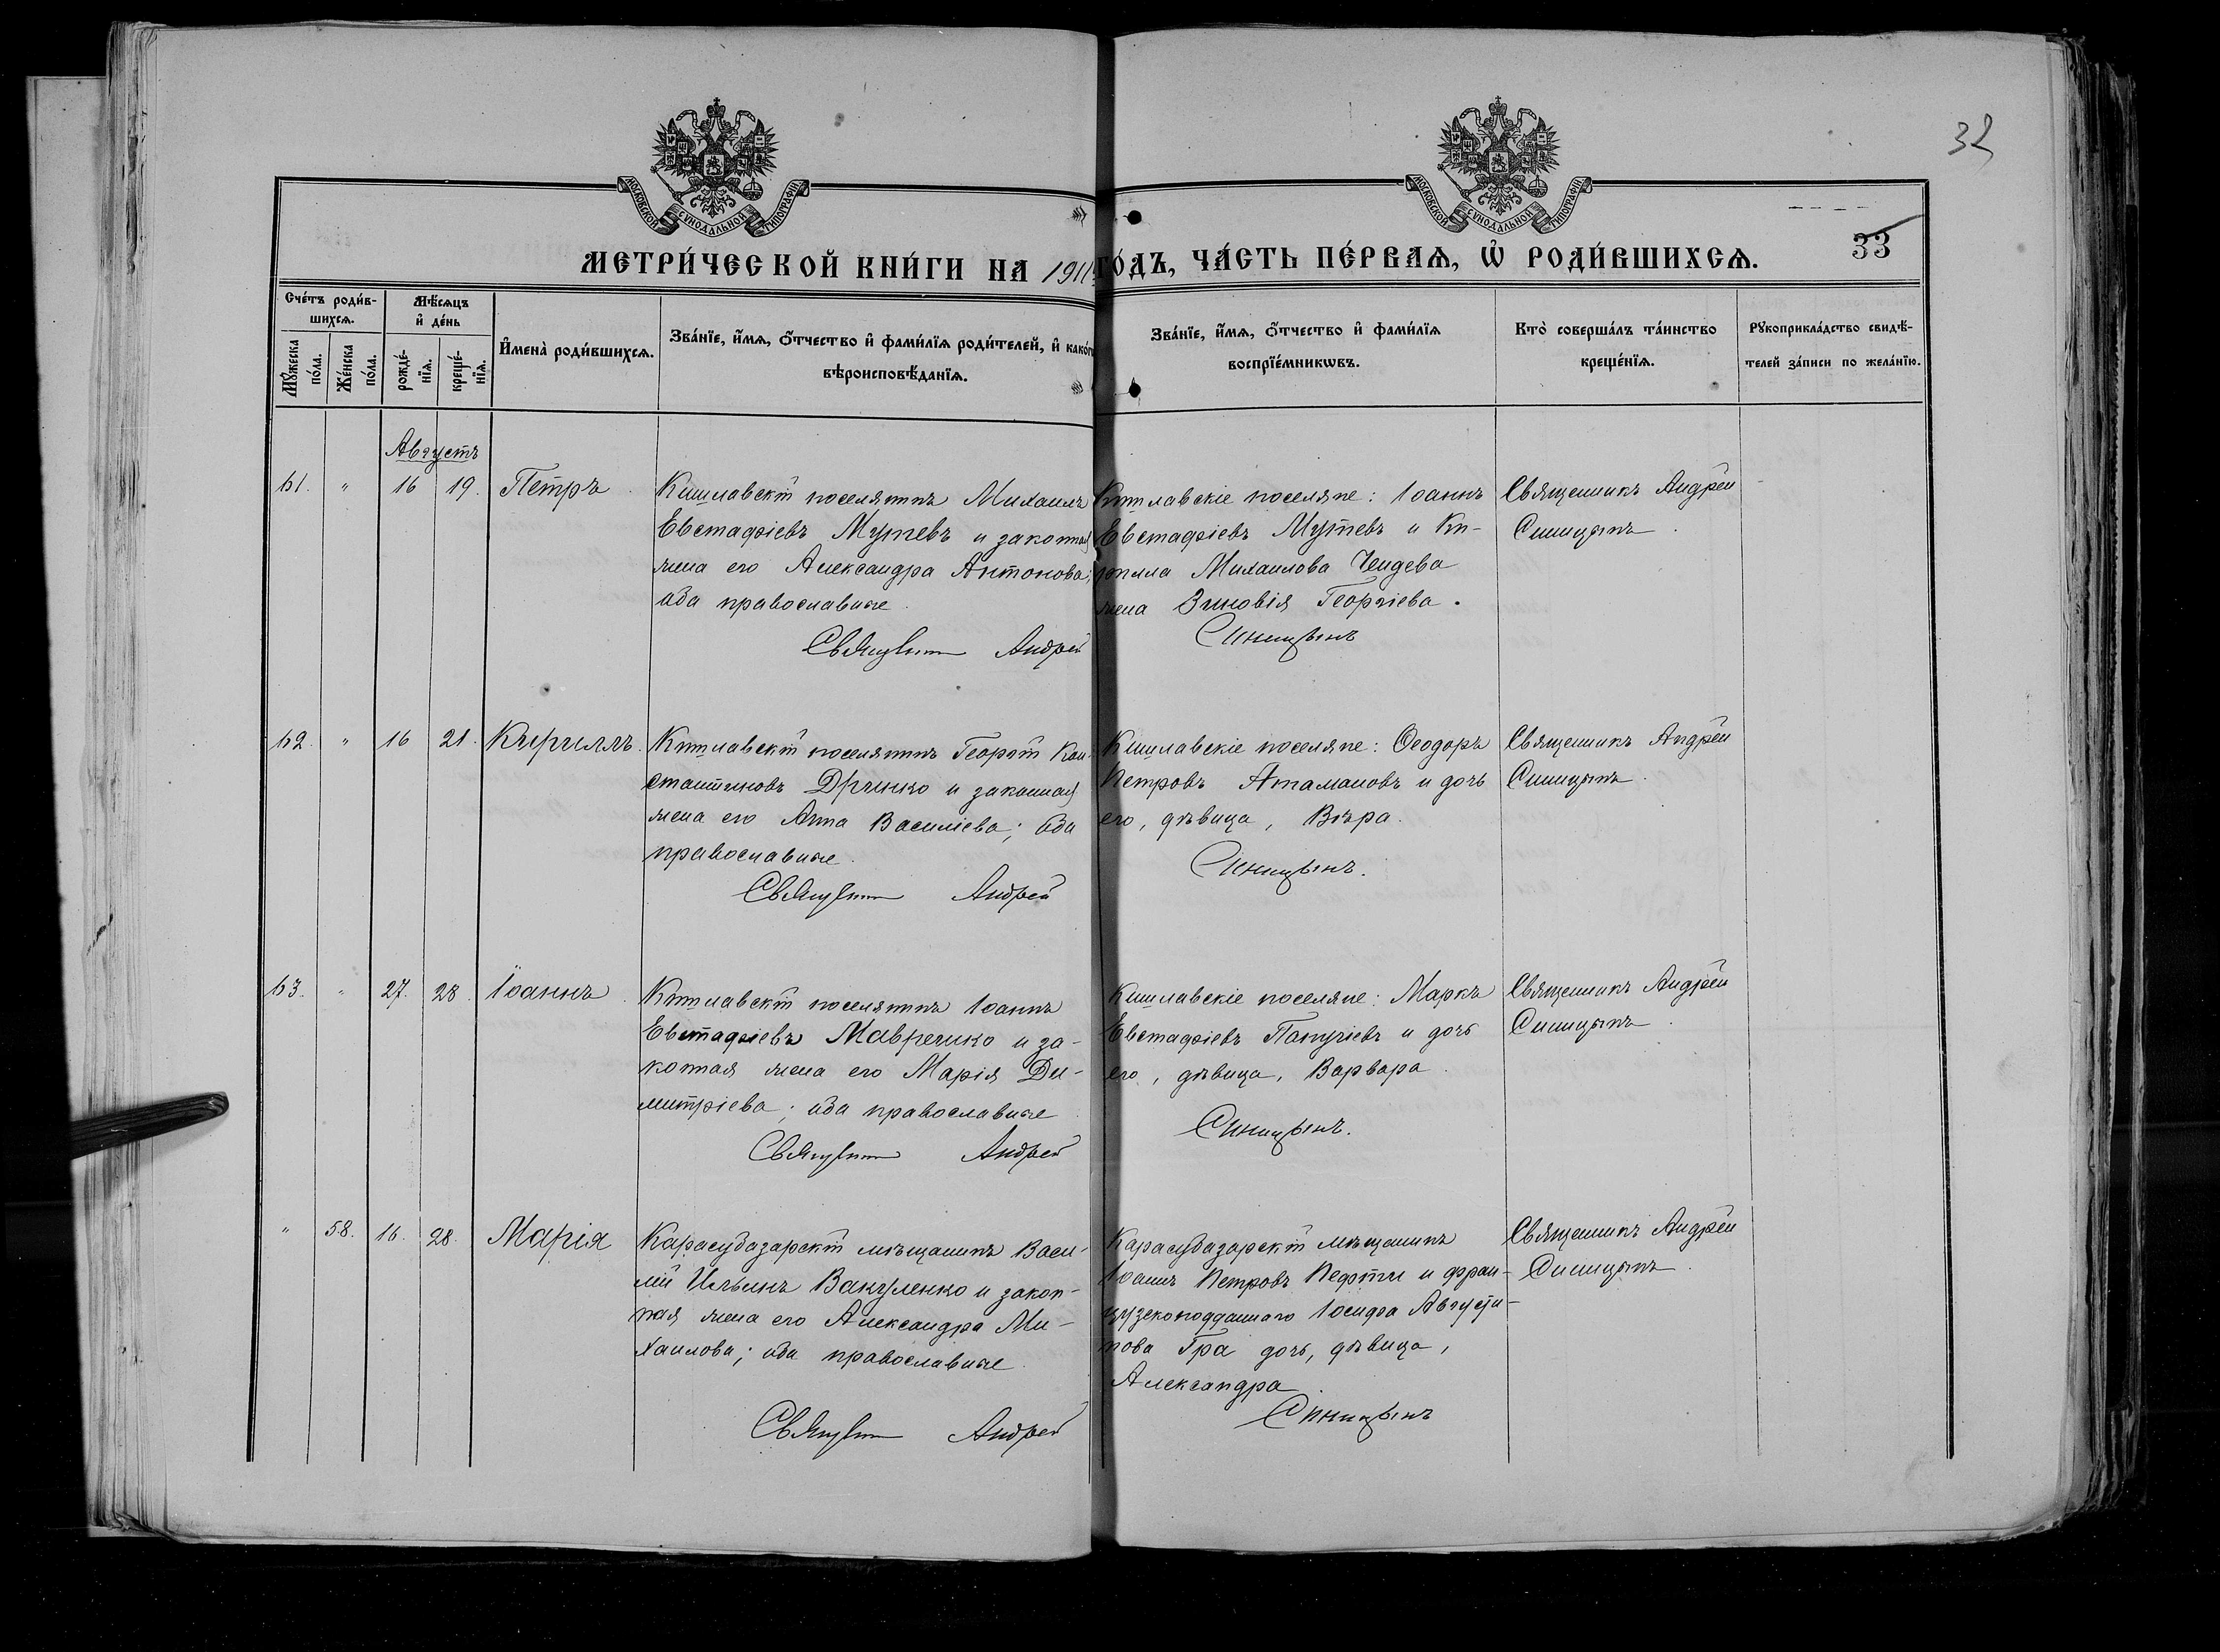 32
МОСКОВСКОЙ СѴНОДАЛЬНОЙ ТИПОГРАФІИ
МОСКОВСКОЙ СѴНОДАЛЬНОЙ ТИПОГРАФІИ
33
МЕТРИ́ЧЕСКОЙ КНИ́ГИ НА 1911 ГО́ДЪ, ЧА́СТЬ ПЕ́РВАѦ, Ѡ҆ РОДИ́ВШИХСѦ.
Сче́тъ роди́в-
шихсѧ.
Мꙋ́жеска по́ла.
Же́нска по́ла.
Мѣ́сѧцъ
и҆ де́нь
рожде́-
нїѧ.
креще́-
нїѧ.
И҆мена̀ роди́вшихсѧ.
Зва́нїе, и҆́мѧ, ѻ҆́тчество и҆ фами́лїѧ роди́телей, и҆ како́гѡ
вѣроисповѣ́данїѧ.
Зва́нїе, и҆́мѧ, ѻ҆́тчество и҆ фами́лїѧ
воспрїе́мникѡвъ.
Кто̀ соверша́лъ та́инство
креще́нїѧ.
Рꙋкоприкла́дство свидѣ́-
телей за́писи по жела́нїю.
Августъ
61. " 16 19. Петръ.
Кишлавскій поселянинъ Михаилъ
Евстафіевъ Мутевъ и законная
жена его Александра Антонова;
оба православные.
Кишлавскіе поселяне: Іоаннъ
Евстафіевъ Мутевъ и Ки-
рилла Михаилова Чендева
жена Зиновія Георгіева.
Священникъ Андрей
Синицынъ.
Священникъ Андрей Синицынъ
62. " 16 21. Кѵриллъ.
Кишлавскій поселянинъ Георгій Кон-
стантиновъ Дринко и законная
жена его Анна Василіева; оба
православные.
Кишлавскіе поселяне: Ѳеодоръ
Петровъ Атамановъ и дочь
его, дѣвица, Вѣра.
Священникъ Андрей
Синицынъ.
Священникъ Андрей Синицынъ.
63. " 27. 28. Іоаннъ.
Кишлавскій поселянинъ Іоаннъ
Евстафіевъ Мавренко и за-
конная жена его Марія Ди-
митріева; оба православные.
Кишлавскіе поселяне: Маркъ
Евстафіевъ Папучіевъ и дочь
его, дѣвица, Варвара.
Священникъ Андрей
Синицынъ.
Священникъ Андрей Синицынъ.
" 58. 16. 28. Марія
Карасубазарскій мѣщанинъ Васи-
лій Ильинъ Вакуленко и закон-
ная жена его Александра Ми-
хаилова; оба православные.
Карасубазарскій мѣщанинъ
Іоаннъ Петровъ Нефти и фран-
цузскоподданнаго Іосифа Августи-
нова Гра дочь, дѣвица,
Александра.
Священникъ Андрей
Синицынъ.
Священникъ Андрей Синицынъ